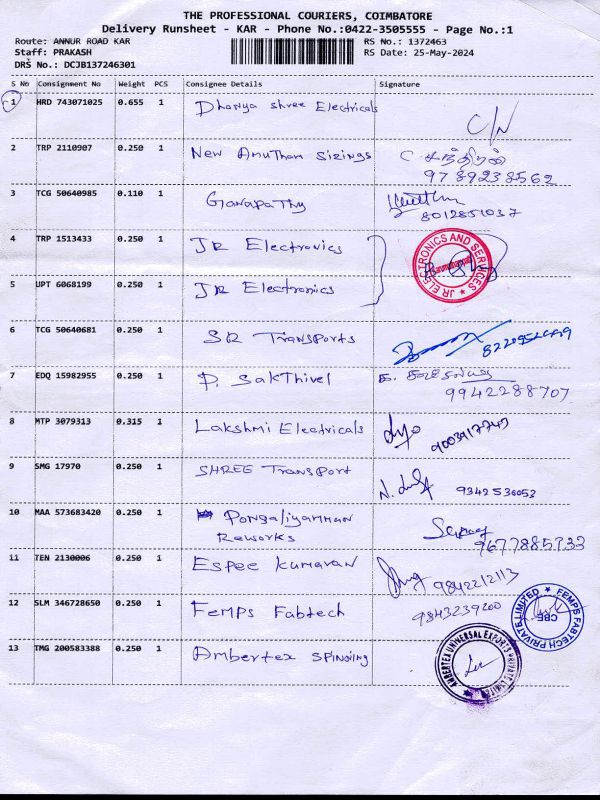 THE PROFESSIONAL COURIERS, COIMBATORE
Delivery Runsheet - KAR - Phone No.:0422-3505555 - Page No.:1
Route: ANNUR ROAD KAR RS No.: 1372463
Staff: PRAKASH RS Date: 25-May-2024
DRS No.: DCJB137246301
S No Consignment No Weight PCS Consignee Details Signature
1 HRD 743071025 0.655 1 Dhanya shree Electricals C/N
2 TRP 2110907 0.250 1 New Amutham Sizings C
9789238562
3 TCG 50640985 0.110 1 Ganapathy
8012851037
4 TRP 1513433 0.250 1 JR Electronics
JR ELECTRONICS AND SERVICES
5 UPT 6068199 0.250 1 JR Electronics
6 TCG 50640681 0.250 1 SR Transports
7 EDQ 15982955 0.250 1 P. Sakthivel
9942288707
8 MTP 3079313 0.315 1 Lakshmi Electricals
9 SMG 17970 0.250 1 SHREE Transport
9342536052
10 MAA 573683420 0.250 1 Pongaliyamman
Reworks
9677885733
11 TEN 2130006 0.250 1 Espee Kumaran 9842212113
12 SLM 346728650 0.250 1 Femps Fabtech 9843239200
FEMPS FABTECH PRIVATE LIMITED
CBE
13 TMG 200583388 0.250 1 Ambertex Spinning
AMBERTEX UNIVERSAL EXPORTS PRIVATE LIMITED